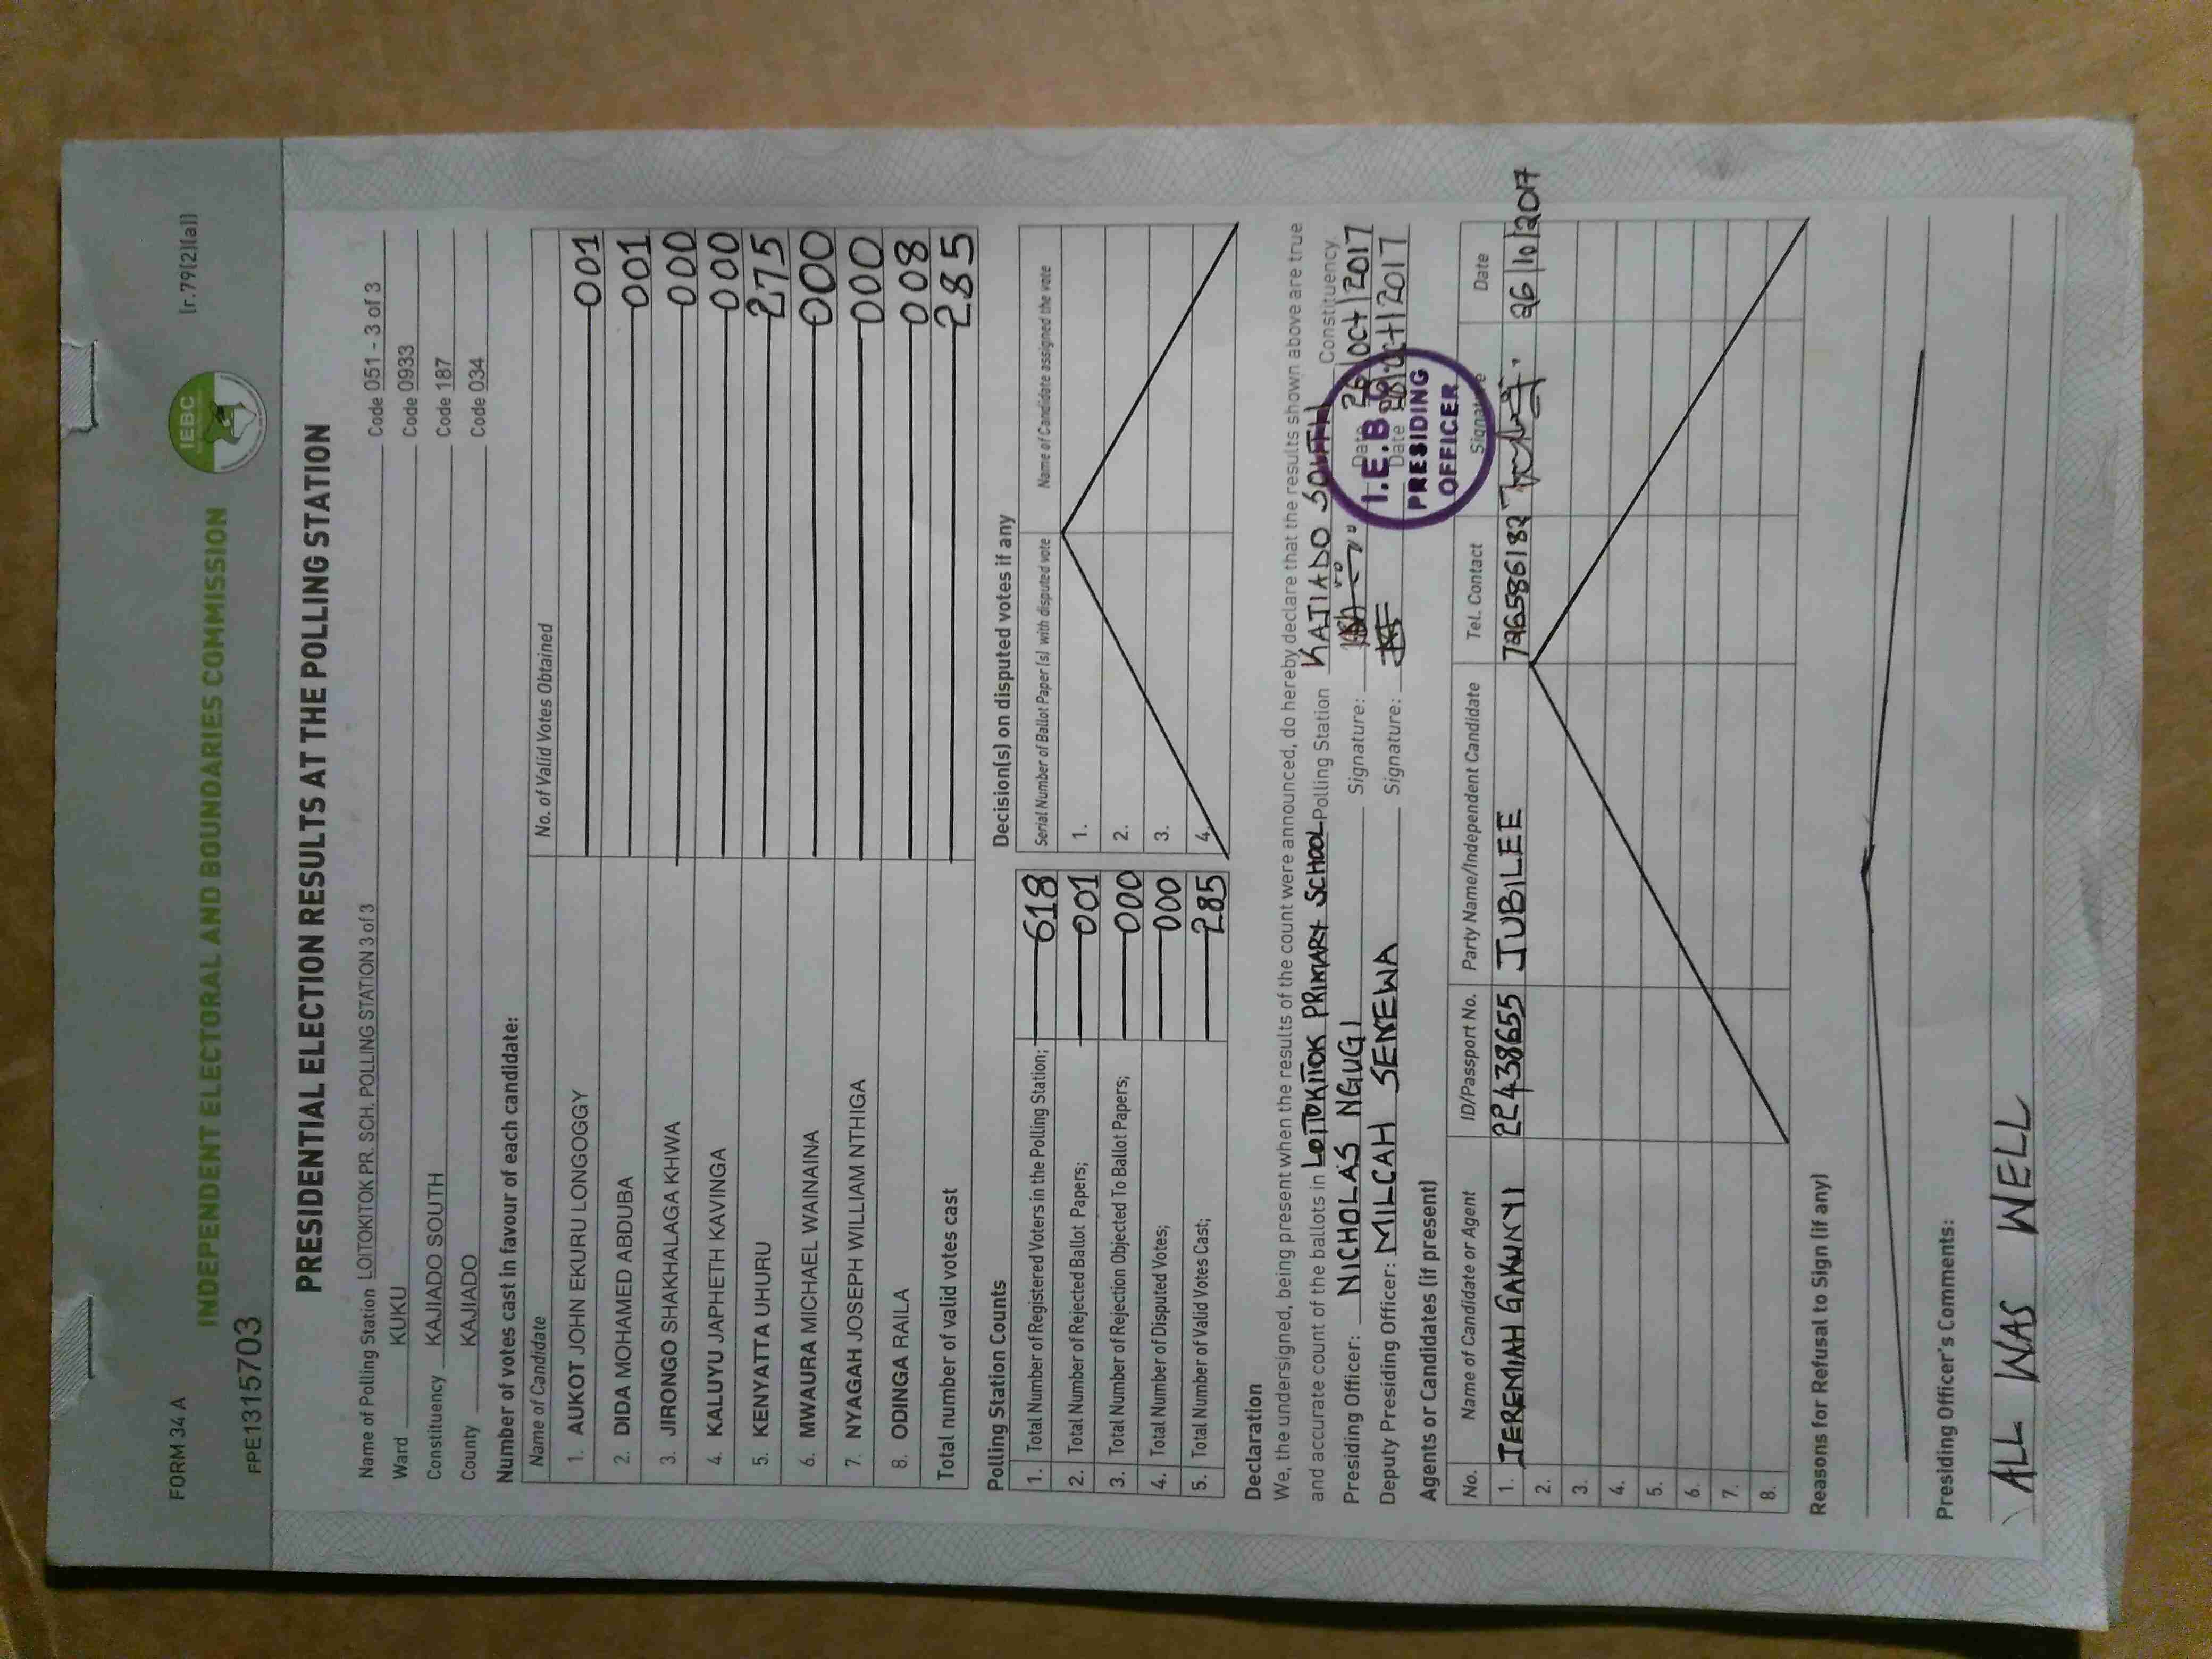 FORM 34 A
INDEPENDENT ELECTORAL AND BOUNDARIES COMMISSION
IEBC
[r.79(2)(a)]
FPE1315703
PRESIDENTIAL ELECTION RESULTS AT THE POLLING STATION
Name of Polling Station LOITOKITOK PR. SCH. POLLING STATION 3 of 3 Code 051 - 3 of 3
Ward KUKU Code 0933
Constituency KAJIADO SOUTH Code 187
County KAJIADO Code 034
Number of votes cast in favour of each candidate:
Name of Candidate No. of Valid Votes Obtained
1. AUKOT JOHN EKURU LONGOGGY 001
2. DIDA MOHAMED ABDUBA 001
3. JIRONGO SHAKHALAGA KHWA 000
4. KALUYU JAPHETH KAVINGA 000
5. KENYATTA UHURU 275
6. MWAURA MICHAEL WAINAINA 000
7. NYAGAH JOSEPH WILLIAM NTHIGA 000
8. ODINGA RAILA 008
Total number of valid votes cast 285
Polling Station Counts
1. Total Number of Registered Voters in the Polling Station; 618
2. Total Number of Rejected Ballot Papers; 001
3. Total Number of Rejection Objected To Ballot Papers; 000
4. Total Number of Disputed Votes; 000
5. Total Number of Valid Votes Cast; 285
Decision(s) on disputed votes if any
Serial Number of Ballot Paper(s) with disputed vote Name of Candidate assigned the vote
1.
2.
3.
4.
Declaration
We, the undersigned, being present when the results of the count were announced, do hereby declare that the results shown above are true
and accurate count of the ballots in LOITOKITOK PRIMARY SCHOOL Polling Station KAJIADO SOUTH Constituency.
Presiding Officer: NICHOLAS NGUGI Signature: Date 26/Oct/2017
Deputy Presiding Officer: MILCAH SENEWA Signature: Date Oct/2017
I.E.B.C
PRESIDING
OFFICER
Agents or Candidates (if present)
No. Name of Candidate or Agent ID/Passport No. Party Name/Independent Candidate Tel. Contact Signature Date
1. JEREMIAH 22438655 JUBILEE 726586182 26/10/2017
2.
3.
4.
5.
6.
7.
8.
Reasons for Refusal to Sign (if any)
Presiding Officer's Comments:
ALL WAS WELL